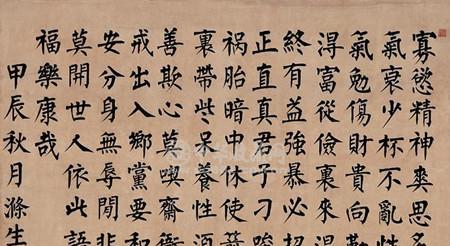 寡慾精神爽思多
氣衰少杯不亂性
氣勉傷財貴向
淂富從儉裏來
終有益強暴必招
正直真君子刁唆
祸胎暗中休使箭
裏帶些呆養性
善欺心莫喫齋衙
戒出入鄉黨要和
安分身無辱閒非
莫開世人依此語
福樂康哉
甲辰秋月滌生